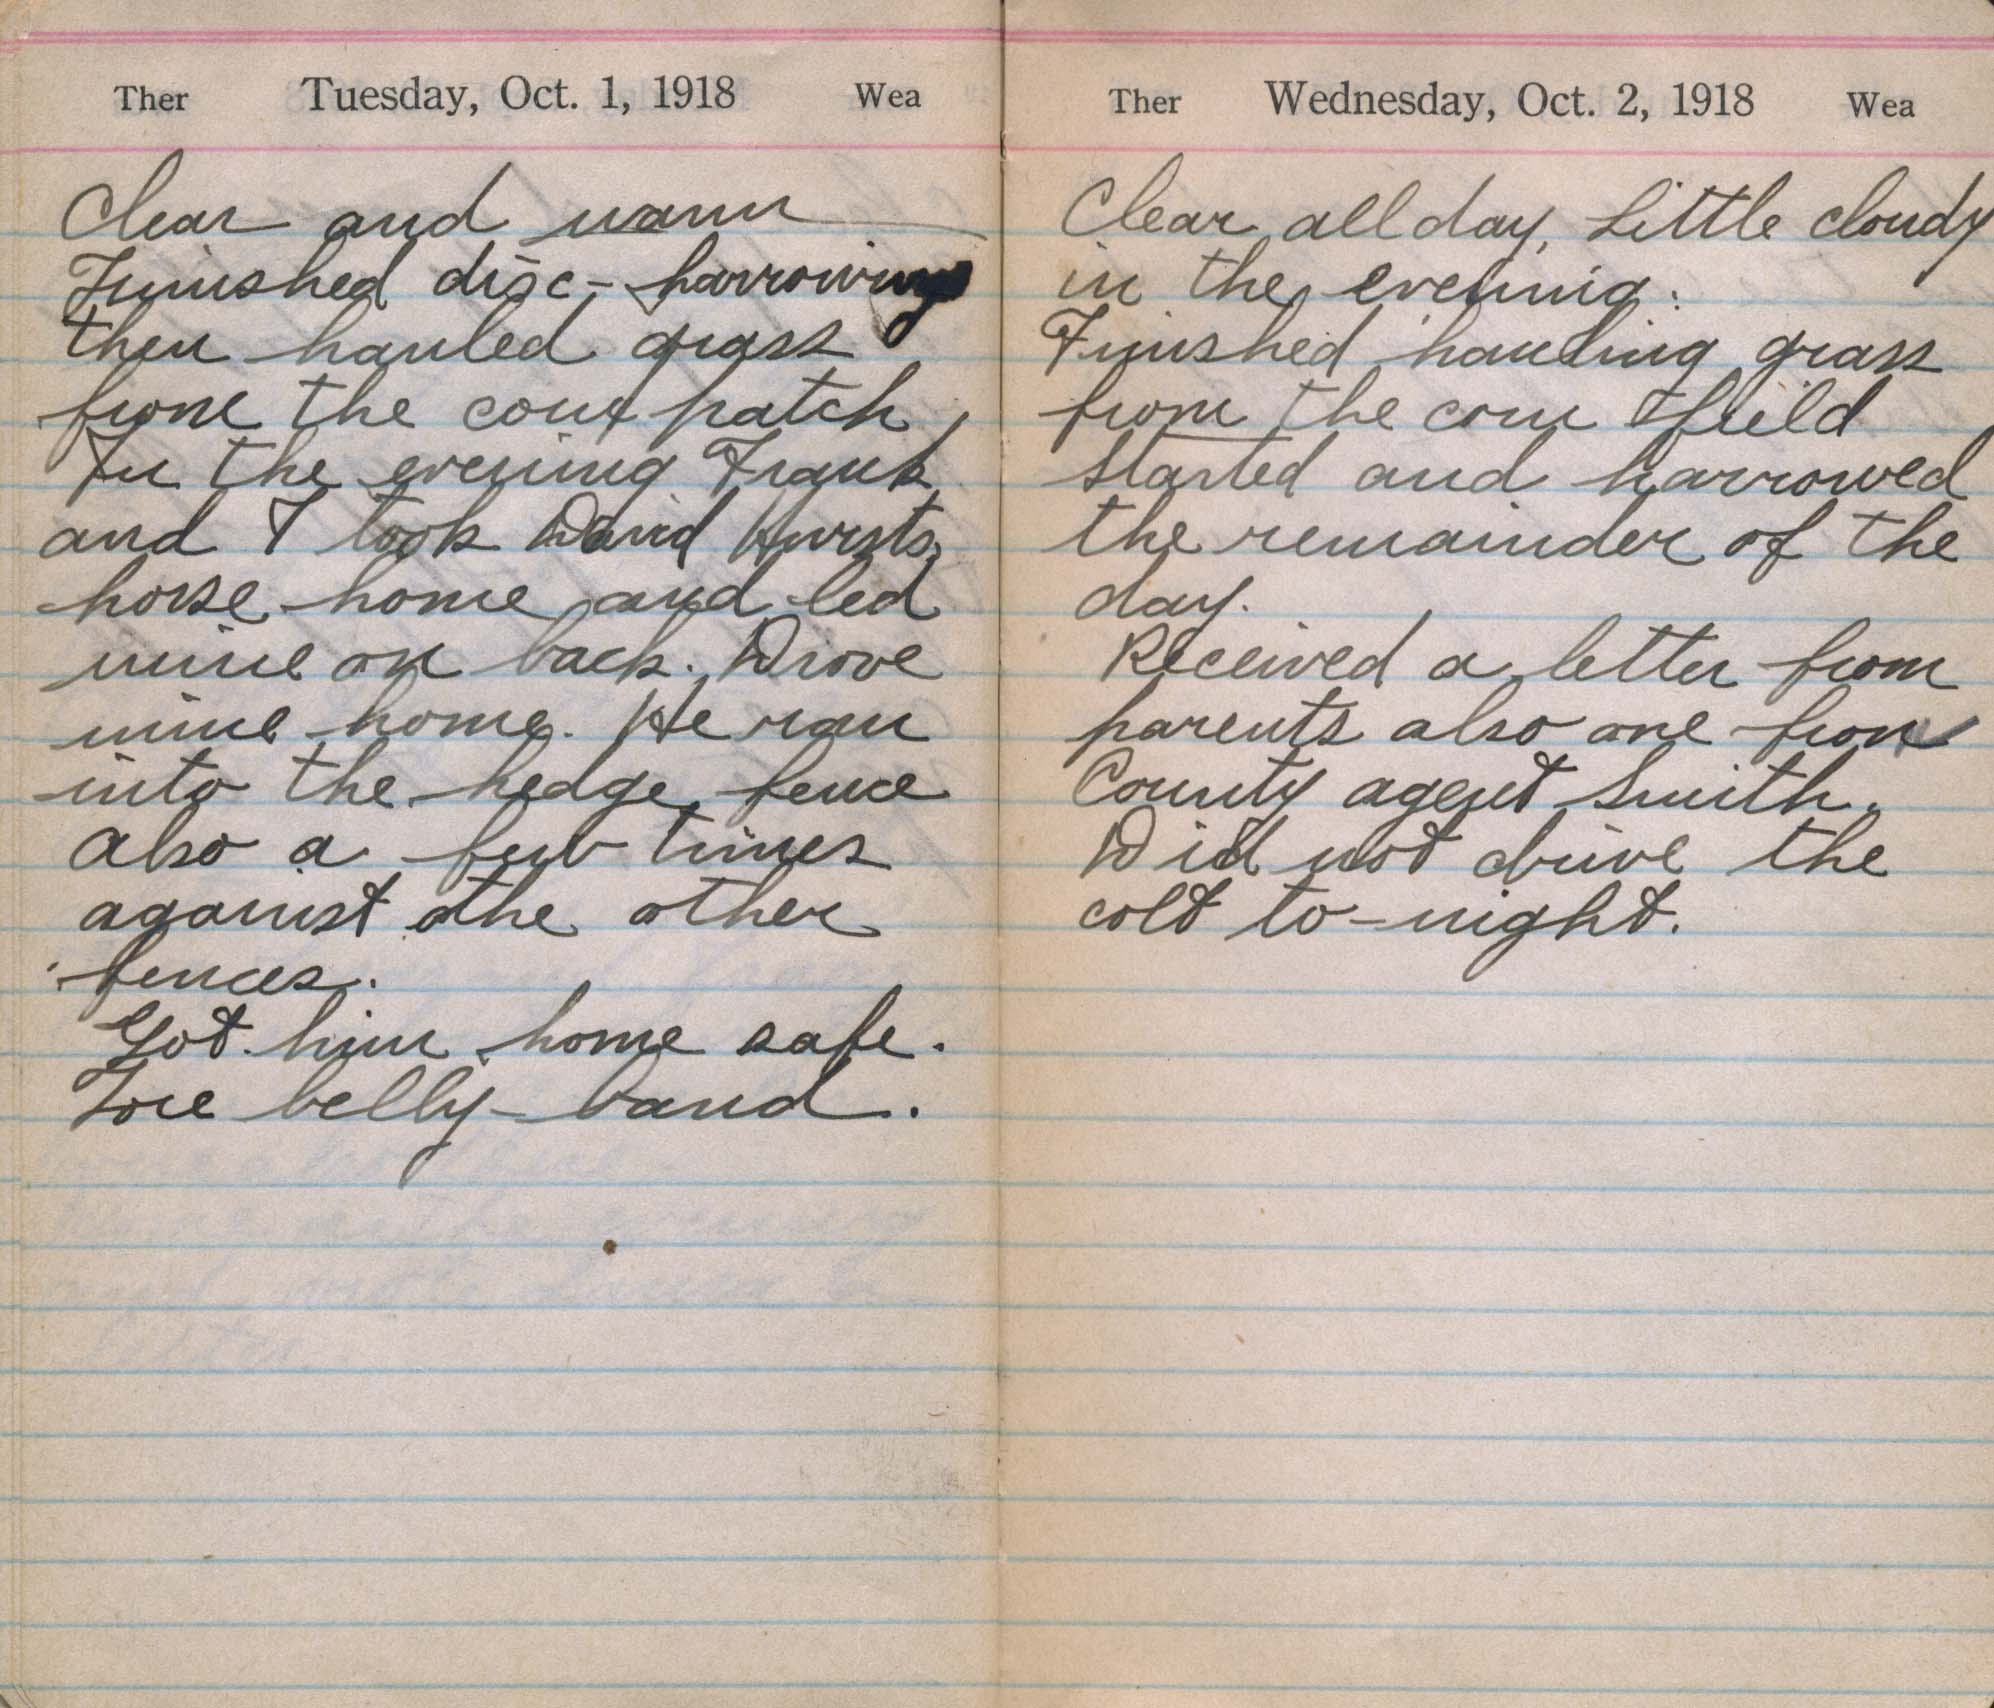 Ther Tuesday, Oct. 1, 1918 Wea
Clear and warm
Finished disc-harrowing
then hauled grass
from the corn patch
In the evening Frank
and I took David Hursts
horse home and led
mine on back. Drove
mine home. He ran
into the hedge fence
also a few times
against the other
fences.
Got him home safe.
Tore belly-band.
Ther Wednesday, Oct. 2, 1918 Wea
Clear all day, Little cloudy
in the evening.
Finished hauling grass
from the corn field
started and harrowed
the remainder of the
day.
Received a letter from
parents also one from
County agent Smith.
Did not drive the
colt to-night.